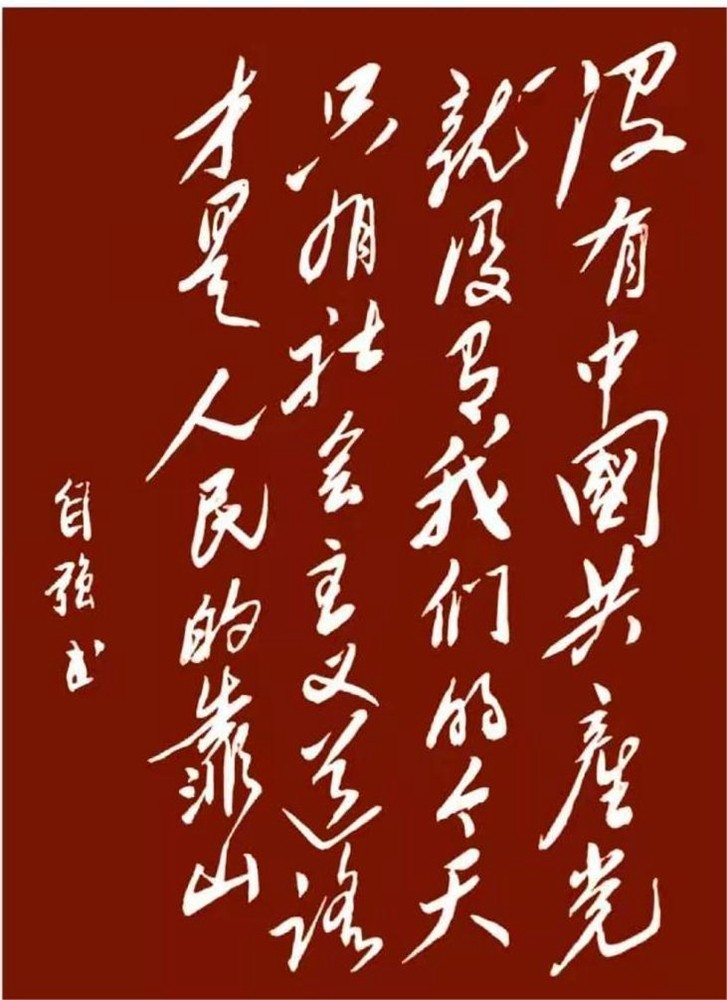 没有中國共産党
就没有我们的今天
只有社会主义道路
才是人民的靠山
自强书